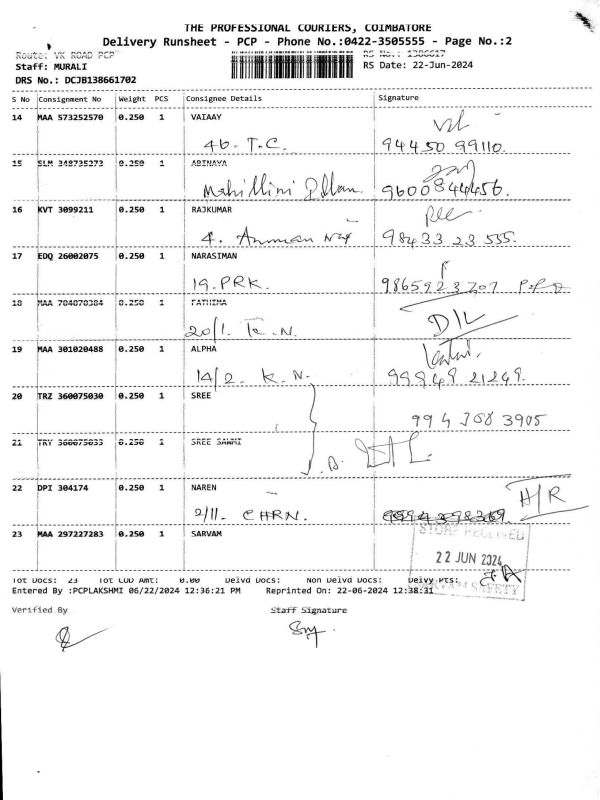 THE PROFESSIONAL COURIERS, COIMBATORE
Delivery Runsheet - PCP - Phone No.:0422-3505555 - Page No.:2
Route: VK ROAD PCP RS No.: 1386617
Staff: MURALI RS Date: 22-Jun-2024
DRS No.: DCJB138661702
S No Consignment No Weight PCS Consignee Details Signature
14 MAA 573252570 0.250 1 VAIAAY
46. T.C. 94450 99110.
15 SLM 348735273 0.250 1 ABINAYA
9600844456.
16 KVT 3099211 0.250 1 RAJKUMAR
4. Amman 98433 23 555.
17 EDQ 26002075 0.250 1 NARASIMAN
19. PRK. 9865923707
18 MAA 704070384 0.250 1 FATHIMA
20/1. T.N. D/L
19 MAA 301020488 0.250 1 ALPHA
14/2. K.N. 99949 21249.
20 TRZ 360075030 0.250 1 SREE
994 368 3905
21 TRY 360075033 0.250 1 SREE SAWMI
22 DPI 304174 0.250 1 NAREN
2/11. CHRN. H/R
23 MAA 297227283 0.250 1 SARVAM
22 JUN 2024
Tot Docs: 23 Tot COD Amt: 0.00 Delvd Docs: Non Delvd Docs: Delvy Pts:
Entered By :PCPLAKSHMI 06/22/2024 12:36:21 PM Reprinted On: 22-06-2024 12:38:31
SAFETY
Verified By Staff Signature